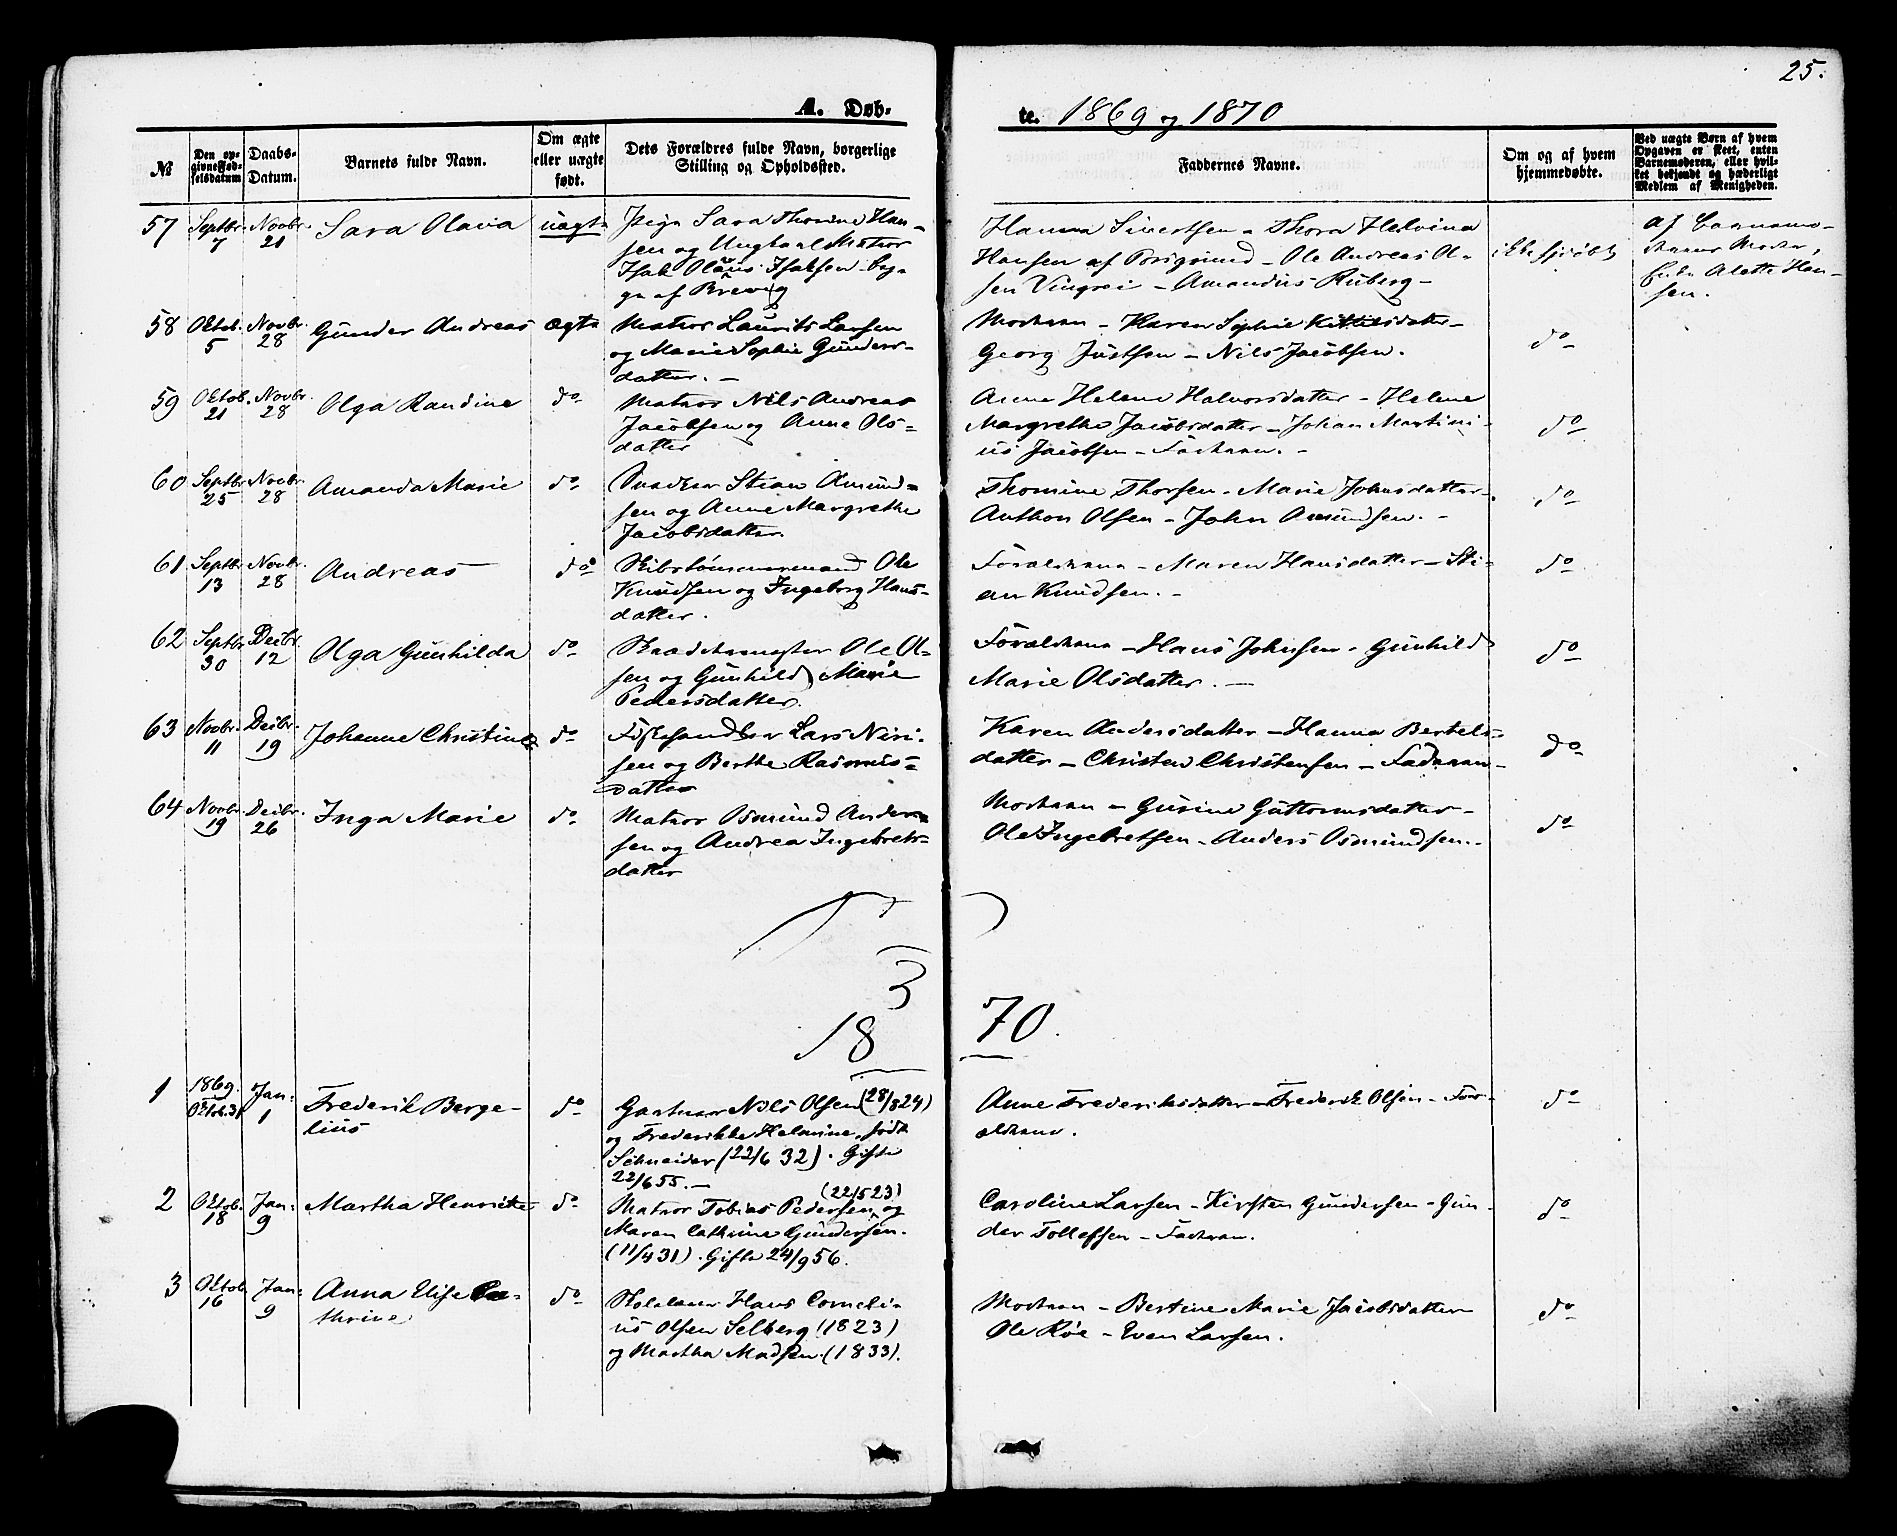 25.
A. Døb-
te. 1869 og 1870
№
Den op-
givne Fød-
selsdatum
Daabs-
Datum.
Barnets fulde Navn.
Om ægte
eller uægte
født.
Dets Forældres fulde Navn, borgerlige
Stilling og Opholdssted.
Faddernes Navne.
Om og af hvem
hjemmedøbte.
Ved uægte Børn af hvem
Opgaven er skeet, enten
Barnemoderen, eller hvil-
ket bekjendt og hæderligt
Medlem af Menigheden.
57 Septbr. 7 Novbr. 21 Sara Olavia uægte
Pige Sara Thorine Han-
sen og Ungkarl Matros
Isak Olaus Isaksen beg-
ge af Brevig
Hanna Sivertsen - Thora Helvina
Hansen af Porsgrund - Ole Andreas Ol-
sen - Amandus Ruberg -
ikke hjdøbt
af Barnemo-
derens Moder,
Alette Han-
sen.
58 Oktob. 5 Novbr. 28 Gunder Andreas ægte
Matros Laurits Larsen
og Marie Sophie Gunders-
datter. -
Moderen - Karen Sophie Kittilsdatter -
Georg Justsen - Nils Jacobsen.
do
59 Oktob. 21 Novbr. 28 Olga Randine do
Matros Nils Andreas
Jacobsen og Anne Ols-
datter
Anne Helene Halvorsdatter - Helene
Margrethe Jacobsdatter - Johan Martini-
us Jacobsen - Faderen. -
do
60 Septbr. 25 Novbr. 28 Amanda Marie do
Stian Amund-
sen og Anne Margrethe
Jacobsdatter.
Thomine Thorsen - Marie Johnsdatter -
Anthon Olsen - John Amundsen. -
do
61 Septbr. 13 Novbr. 28 Andreas do
Skibstømmermand Ole
Knudsen og Ingeborg Hans-
datter.
Forældrene - Maren Hansdatter - Sti-
an Knudsen. -
do
62 Septbr. 30 Decbr. 12 Olga Gunhilda do
Skrædermester Ole Ol-
sen og Gunhild Marie
Pedersdatter.
Forældrene - Hans Johnsen - Gunhild
Marie Olsdatter. -
do
63 Novbr. 11 Decbr. 19 Johanne Christine do
Fiskehandler Lars Niri-
sen og Berthe Rasmus-
datter
Karen Andersdatter - Hanna Bertels-
datter - Christen Christensen - Faderen -
do
64 Novbr. 19 Decbr. 26 Inga Marie do
Matros Osmund Ander-
sen og Andrea Ingebrets-
datter
Moderen - Gurine Guttormsdatter -
Ole Ingebretsen - Anders Osmundsen. -
do
3
18 70.
1 1869. Octob. 31 Jan. 1 Frederik Berge-
lius do
Gartner Nils Olsen (28/8 24)
og Frederikke Helmine, født
Schneider (22/6 32). Gifte
22/6 55. -
Anne Frederiksdatter - Frederik Olsen - For-
ældrene.
do
2 Oktob. 18 Jan. 9 Martha Henriette do
(22/5 23)
Matros Tobias Pedersen og
Maren Cathrine Gundersen.
(11/4 31). Gifte 24/9 56.
Caroline Larsen - Kirsten Gundersen - Gun-
der Tollefsen - Faderen.
do
3 Oktob. 16 Jan. 9 Anna Elise Ca-
thrine do
Skolelærer Hans Corneli-
us Olsen Selberg (1823)
og Martha Madsen. (1833).
Moderen - Bertine Marie Jacobsdatter
Ole Röe - Even Larsen.
do